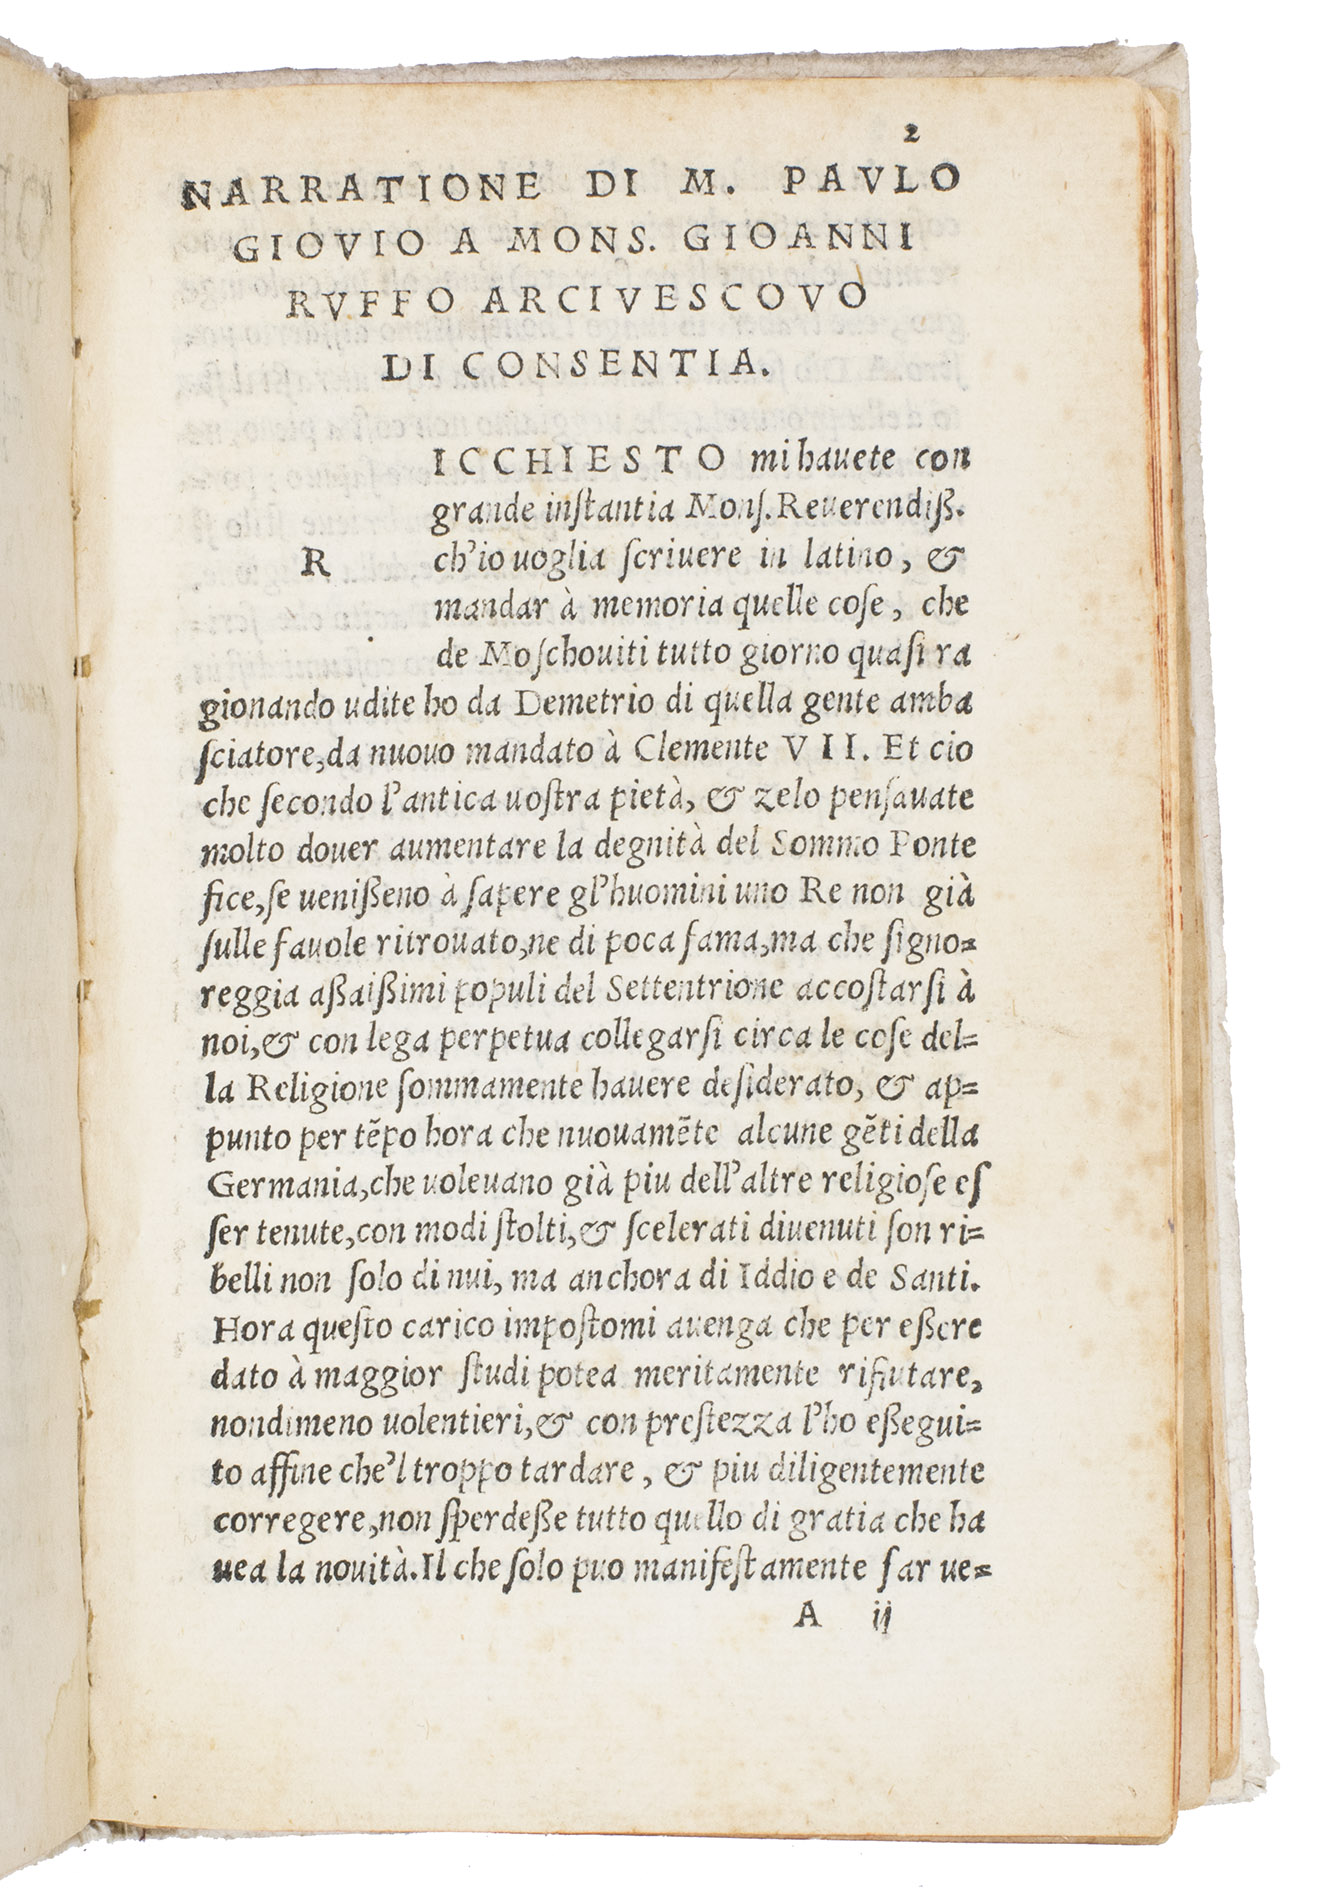 2
NARRATIONE DI M. PAVLO
GIOVIO A MONS. GIOANNI
RVFFO ARCIVESCOVO
DI CONSENTIA.
R ICCHIESTO mi hauete con
grande inſtantia Monſ. Reuerendiß.
ch'io uoglia ſcriuere in latino, &
mandar à memoria quelle coſe, che
de Moſchouiti tutto giorno quaſi ra
gionando udite ho da Demetrio di quella gente amba
ſciatore, da nuouo mandato à Clemente VII. Et cio
che ſecondo l'antica uoſtra pietà, & zelo penſauate
molto douer aumentare la degnità del Sommo Ponte
fice, ſe uenißeno à ſapere gl'huomini uno Re non già
ſulle fauole ritrouato, ne di poca fama, ma che ſigno=
reggia aßaißimi populi del Settentrione accoſtarſi à
noi, & con lega perpetua collegarſi circa le coſe del=
la Religione ſommamente hauere deſiderato, & ap=
punto per tẽpo hora che nuouamẽte alcune gẽti della
Germania, che uoleuano già piu dell'altre religioſe eſ
ſer tenute, con modi ſtolti, & ſcelerati diuenuti ſon ri=
belli non ſolo di nui, ma anchora di Iddio e de Santi.
Hora queſto carico impoſtomi auenga che per eßere
dato à maggior ſtudi potea meritamente rifiutare,
nondimeno uolentieri, & con preſtezza l'ho eßegui=
to affine che'l troppo tardare, & piu diligentemente
corregere, non ſperdeße tutto quello di gratia che ha
uea la nouità. Il che ſolo puo manifeſtamente far ue=
A ij